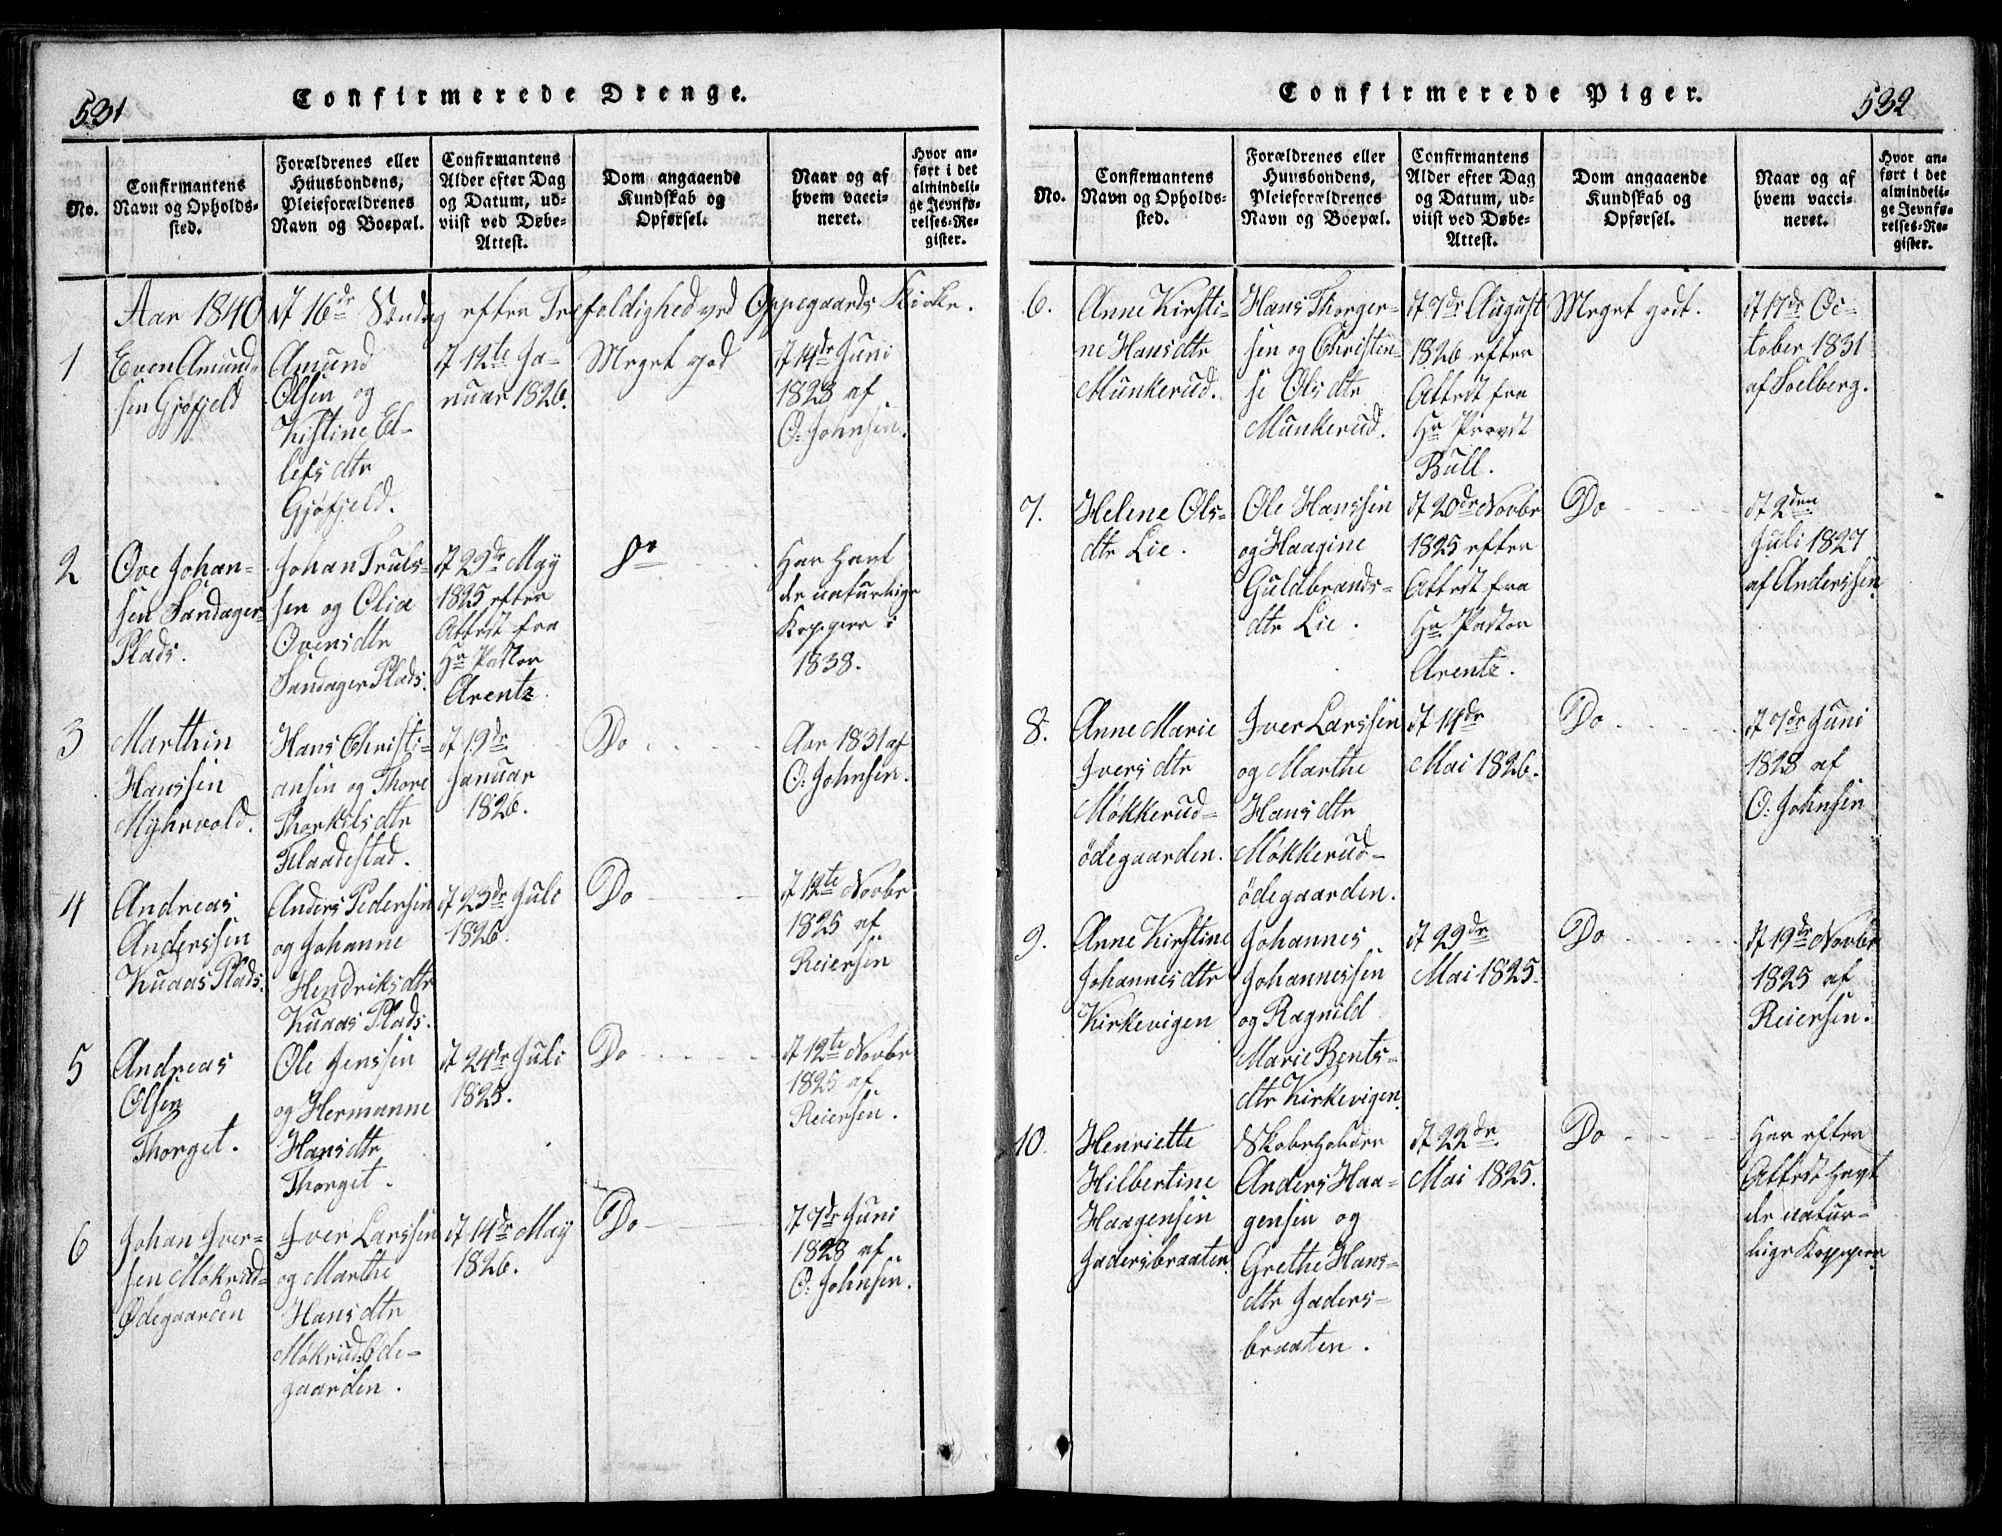 531
Confirmerede Drenge.
No.
Confirmantens
Navn og Opholds-
sted.
Forældrenes eller
Huusbondens,
Pleieforældrenes
Navn og Boepæl.
Confirmantens
Alder efter Dag
og Datum, ud-
viist ved Døbe-
Attest.
Dom angaaende
Kundskab og
Opførsel.
Naar og af
hvem vacci-
neret.
Hvor an-
ført i det
almindeli-
ge Jevnfø-
relses-Re-
gister.
Aar 1840 d 16de Søndag efter Trefoldighed ved Oppegaards Kirke.
1
Even Amund-
sen Gjøfjeld
Amund
Olsen og
Kistine El-
lefsdtr
Gjøfjeld.
d 12te Ja-
nuar 1826.
Meget god
d 14de Juni
1828 af
O. Johnsen.
2
Ove Johan-
sen Sandager
Plads.
Johan Truls-
sen og Olia
Ovensdtr
Sandager Plads.
d 29de May
1825 efter
Attest fra
Hr Pastor
Arentz.
Do
Har havt
de naturlige
Kopper i
1838.
3
Marthin
Hanssen
Myhrvold.
Hans Christi-
ansen og Thore
Thorkilsdtr
Flaadestad.
d 19de
Januar
1826.
Do
Aar 1831 af
O. Johnsen.
4
Andreas
Anderssen
Kuaas Plads.
Anders Pedersen
og Johanne
Hendriksdtr
Kuaas Plads.
d 23de Juli
1826.
Do
d 12te Novbr
1825 af
Reiersen
5
Andreas
Olsen
Thorget.
Ole Jenssen
og Hermanne
Hansdtr
Thorget.
d 24de Juli
1825.
Do
d 12te Novbr
1825 af
Reiersen.
6
Johan Iver-
sen Mokrud-
Ødegaarden
Iver Larssen
og Marthe
Hansdtr
Møkrud Øde-
gaarden.
d 14de May
1826.
Do
d 7de Juni
1828 af
O. Johnsen.
532
Confirmerede Piger.
No.
Confirmantens
Navn og Opholds-
sted.
Forældrenes eller
Huusbondens,
Pleieforældrenes
Navn og Boepæl.
Confirmantens
Alder efter Dag
og Datum, ud-
viist ved Døbe-
Attest.
Dom angaaende
Kundskab og
Opførsel.
Naar og af
hvem vacci-
neret.
Hvor an-
ført i det
almindeli-
ge Jevnfø-
relses-Re-
gister.
6.
Anne Kirsti-
ne Hansdtr
Munkerud.
Hans Thorger-
sen og Christen-
se Olsdtr
Munkerud.
d 7de August
1826 efter
Attest fra
Hr Provst
Bull.
Meget godt.
d 17de Oc-
tober 1831
af Soelberg.
7.
Helene Ols-
dtr Lie.
Ole Hanssen
og Haagine
Guldbrands-
dtr Lie.
d 20de Novbr
1825 efter
Attest fra
Hr Pastor
Arentz.
Do
d 2den
Juli 1827
af Anderssen
8.
Anne Marie
Iversdtr
Møkkerud-
ödegaarden.
Iver Larssen
og Marthe
Hansdtr
Møkkerud-
ödegaarden.
d 14de
Mai 1826.
Do
d 7de Juni
1828 af
O. Johnsen
9.
Anne Kirstine
Johannesdtr
Kirkevigen
Johannes
Johannessen
og Ragnild
Marie Bents-
dtr Kirkevigen.
d 29de
Mai 1825.
Do
d 19de Novbr
1825 af
Reiersen.
10.
Henriette
Hilbertine
Haagensen
Gadersbraaten
Anders Haa-
gensen og
Grethe Hans-
dtr Gaders-
braaten.
d 22de
Mai 1825.
Do
Har efter
Attest havt
de natur-
lige Kopper